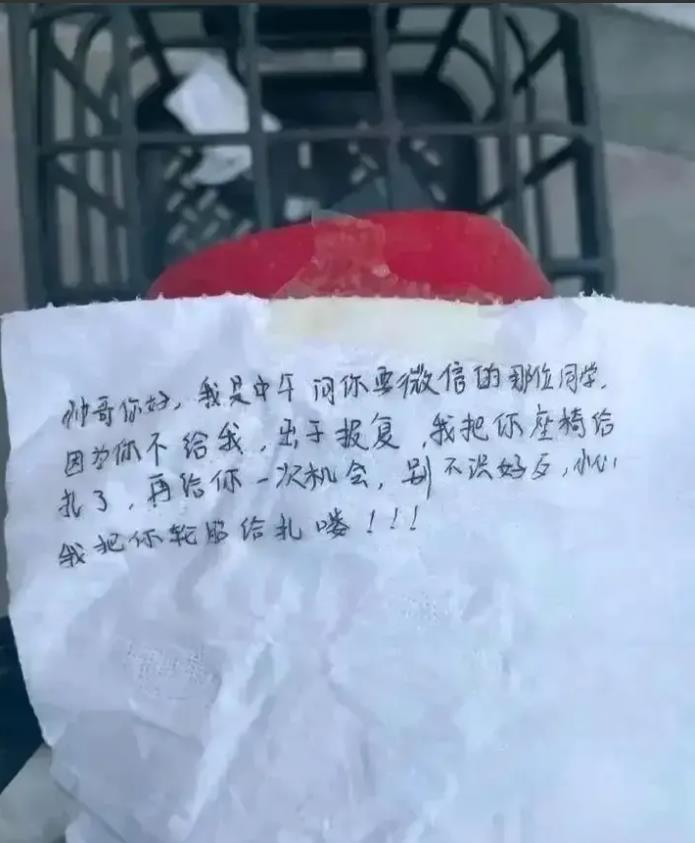 帅哥你好，我是中午问你要微信的那位同学，
因为你不给我，出于报复，我把你座椅给
扎了，再给你一次机会，别不识好歹，小心
我把你轮胎给扎喽！！！